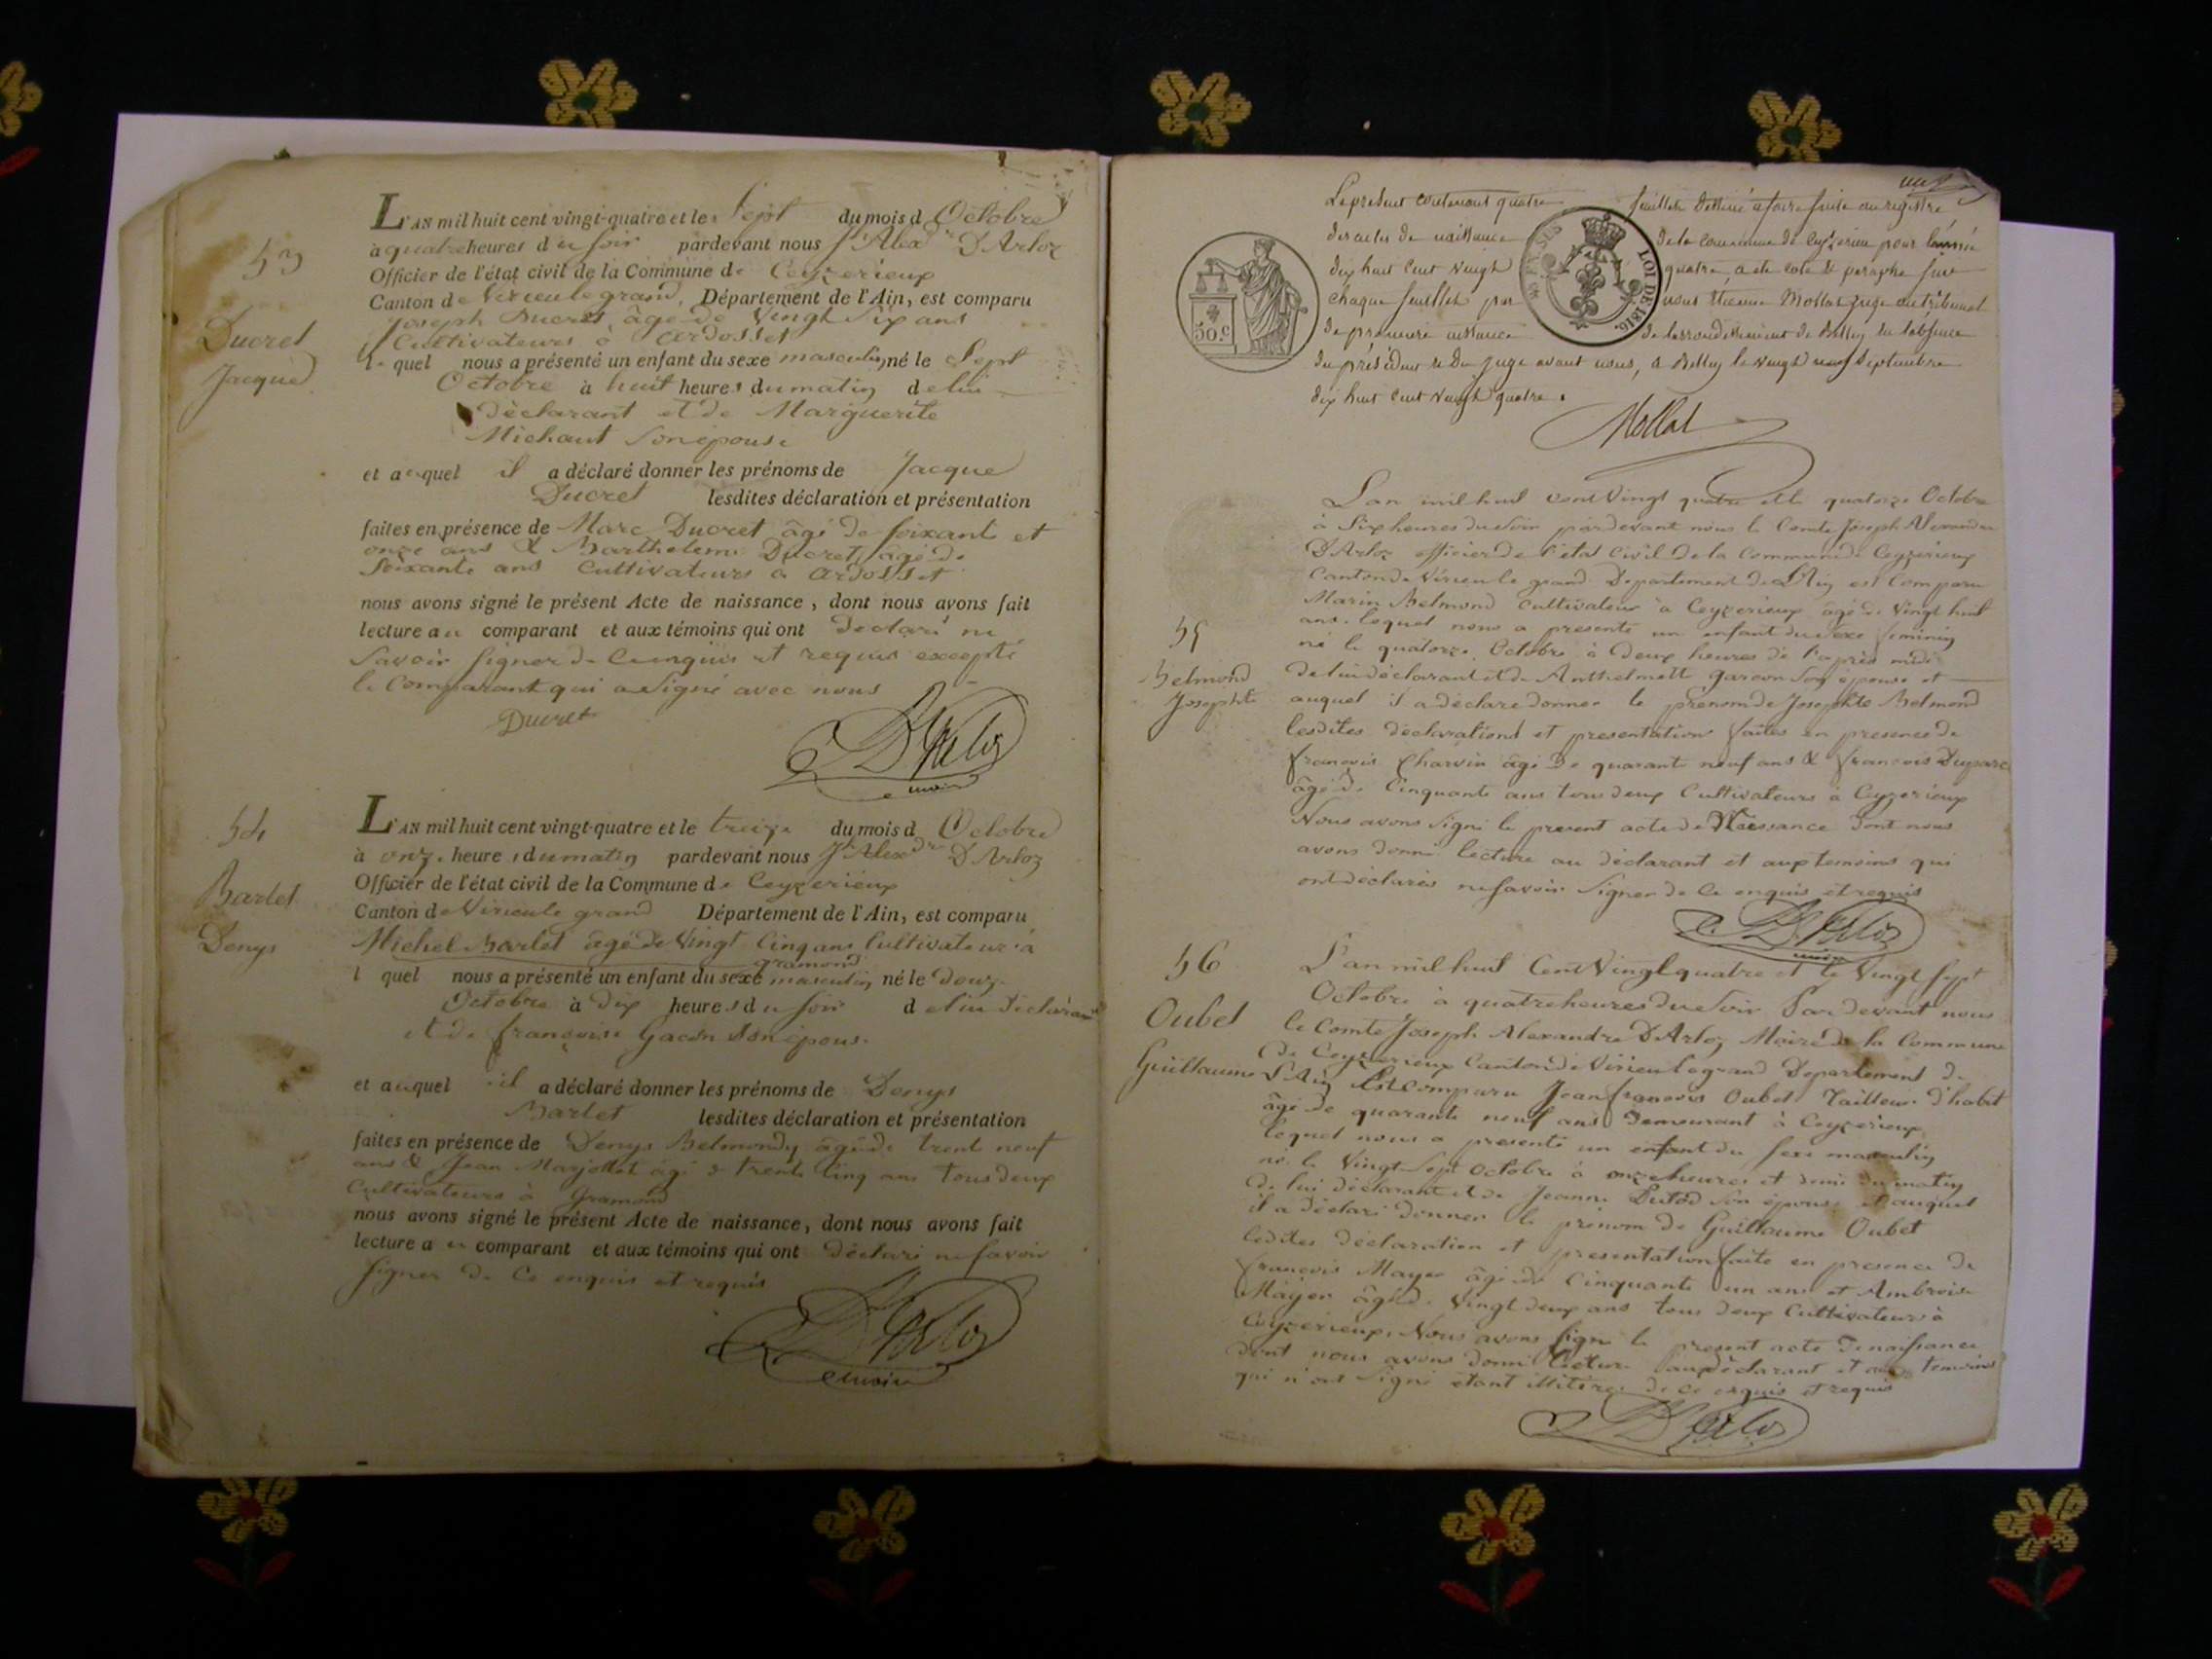 53
Ducret
Jacque
L'AN mil huit cent vingt-quatre et le Sept du mois d Octobre
à quatre heures du soir pardevant nous Jh Alexdre D'Arloz
Officier de l'état civil de la Commune de Ceyzerieux
Canton de Virieu le grand, Département de l'Ain, est comparu
Joseph Ducret âgé de Vingt Six ans
Cultivateurs à Ardosset
le quel nous a présenté un enfant du sexe masculin né le Sept
Octobre à huit heures du matin de lui
déclarant et de Marguerite
Michaut Son épouse
et auquel il a déclaré donner les prénoms de Jacque
Ducret lesdites déclaration et présentation
faites en présence de Marc Ducret âgé de soixante et
onze ans & Barthelemi Ducret âgé de
Soixante ans Cultivateurs à Ardosset
nous avons signé le présent Acte de naissance, dont nous avons fait
lecture au comparant et aux témoins qui ont déclaré ne
Savoir signer de ce enquis et requis excepté
le Comparant qui a signé avec nous
Ducret
D'Arloz
maire
54
Barlet
Denys
L'AN mil huit cent vingt-quatre et le treize du mois d Octobre
à onze heures du matin pardevant nous Jh Alexdre D'Arloz
Officier de l'état civil de la Commune de Ceyzerieux
Canton de Virieu le grand Département de l'Ain, est comparu
Michel Barlet âgé de Vingt Cinq ans Cultivateur à
gramond
l quel nous a présenté un enfant du sexe masculin né le douze
Octobre à Dix heures du soir de lui déclarant
et de françoise Gacon Son épouse
et auquel il a déclaré donner les prénoms de Denys
Barlet lesdites déclaration et présentation
faites en présence de Denys Belmondy âgé de trente neuf
ans & Jean Marjollet âgé de trente Cinq ans tous deux
Cultivateurs à gramond
nous avons signé le présent Acte de naissance, dont nous avons fait
lecture au comparant et aux témoins qui ont déclaré ne savoir
signer de ce enquis et requis
D'Arloz
maire
Le présent contenant quatre feuillets destiné à faire suite au registre
des actes de naissance de la commune de Ceyzerieu pour l'année
dix huit cent vingt quatre, a été coté & paraphé sur
chaque feuillet par nous Etienne Mollat juge au tribunal
de première instance de l'arrondissement de Belley en l'absence
du président & du juge avant nous, à Belley le vingt neuf Septembre
dix huit cent vingt quatre.
50.c
LOI DE 1816.
Mollat
55
Belmond
Josephte
L'an mil huit cent Vingt quatre et le quatorze Octobre
à Six heures du soir pardevant nous le Comte Joseph Alexandre
D'Arloz officier de l'état Civil de la Commune de Ceyzerieux
Canton de Virieu le grand Departement de L'Ain est Comparu
Marin Belmond Cultivateur à Ceyzerieux âgé de Vingt huit
ans. lequel nous a presenté un enfant du Sexe feminin
né le quatorze Octobre à deux heures de l'après midi
de lui déclarant et de Anthelmette garcon son épouse et
auquel il a déclaré donner le prenom de Josephte Belmond
lesdites déclarations et presentation faites en presence de
françois Charvin âgé de quarante neuf ans & françois Duparc
âgé de Cinquante ans tous deux Cultivateurs à Ceyzerieux
Nous avons Signé le present acte de Naissance dont nous
avons donné lecture au déclarant et aux temoins qui
ont déclarés ne Savoir Signer de ce enquis et requis
D'Arloz
maire
56
Oubet
Guillaume
L'an mil huit Cent Vingt quatre et le Vingt Sept
Octobre à quatre heures du Soir Pardevant nous
le Comte Joseph Alexandre D'Arloz Maire de la Commune
de Ceyzerieux Canton de Virieu le grand Departement de
L'Ain Est Comparu Jean françois Oubet Tailleur d'habit
âgé de quarante neuf ans Demeurant à Ceyzerieux
lequel nous a presenté un enfant du Sexe masculin
né le Vingt Sept Octobre à onze heures et demi du matin
de lui déclarant et de Jeanne Dutod son épouse et auquel
il a déclaré donner le prénom de Guillaume Oubet
lesdites déclaration et presentation faite en presence de
françois Mayer âgé de Cinquante un ans et Ambroise
Mayer âgé de Vingt deux ans tous deux Cultivateurs à
Ceyzerieux. Nous avons Signé le present acte de naissance
dont nous avons donné lecture au déclarant et aux temoins
qui n'ont Signé étant illitérés de ce enquis et requis
D'Arloz